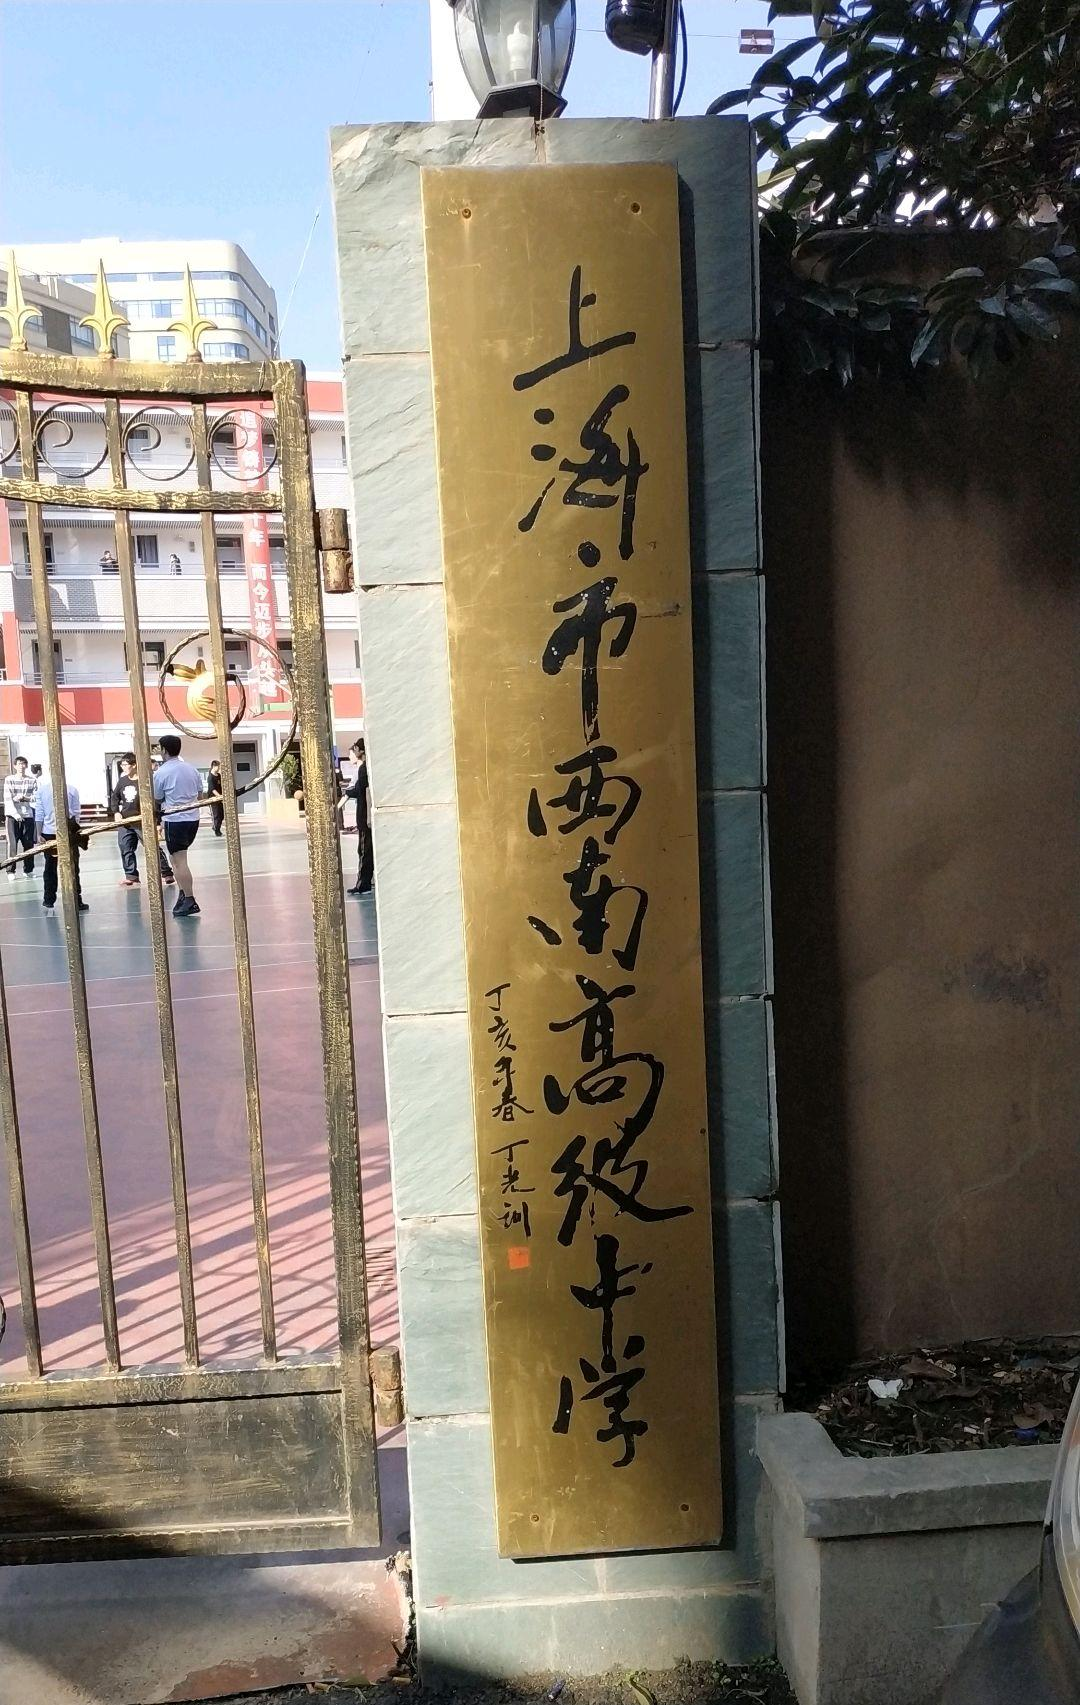 上海市西南高级中学
丁亥年春 丁光训
年 而今迈步从头越